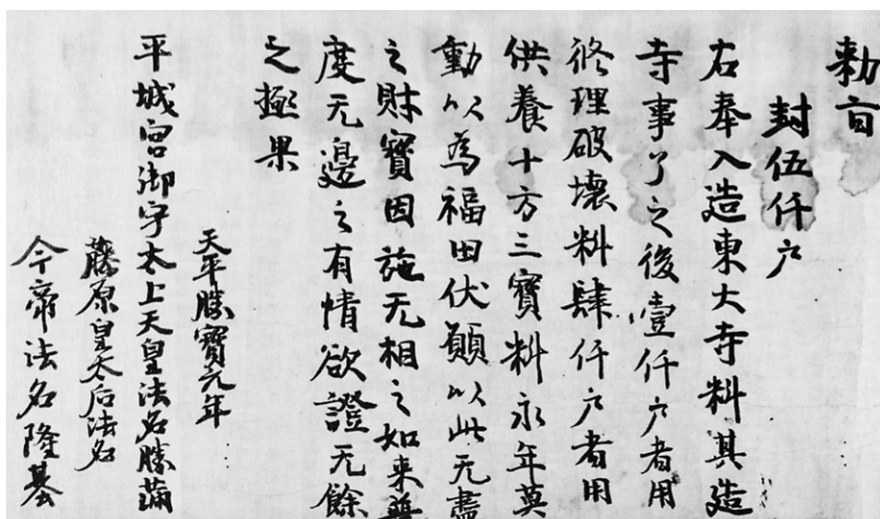 勅旨
封伍仟戶
右奉入造東大寺料其造
寺事了之後壹仟戶者用
修理破壞料肆仟戶者用
供養十方三寶料永年莫
動以為福田伏願以此无盡
之財寶因施无相之如来普
度无邊之有情欲證无餘
之極果
天平勝寶元年
平城宮御宇太上天皇法名勝滿
藤原皇太后法名
今帝法名隆基